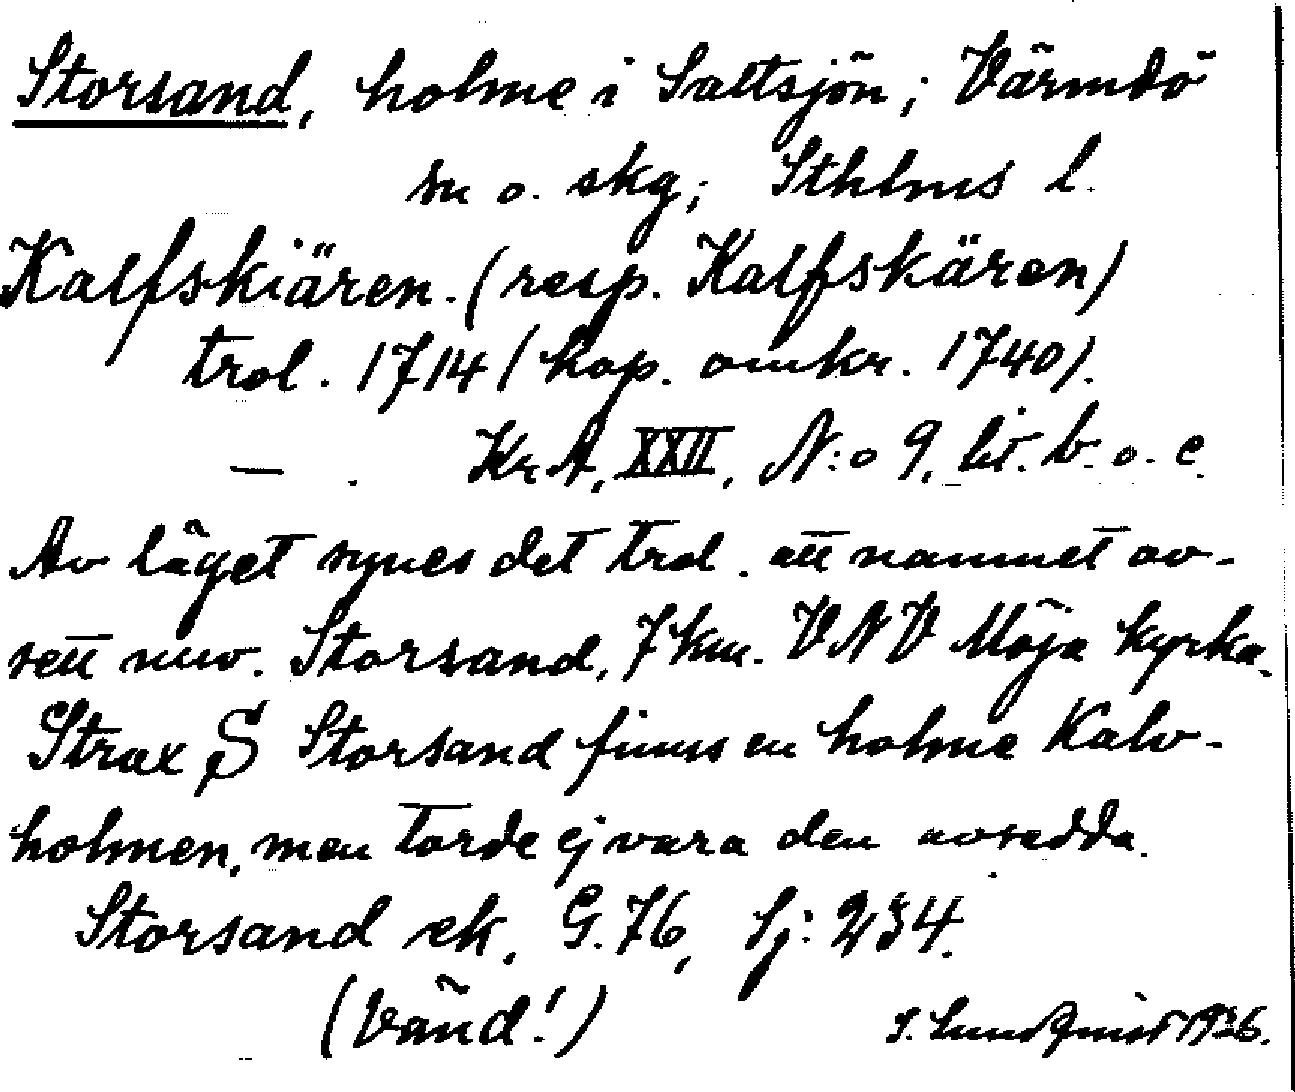 Storsand, holme i Saltsjön; Värmdö
sn o. skg; Sthlms l.
Kalfskiären. (resp. Kalfskären)
trol. 1714 (kop. omkr. 1740).
— . KrA, XXII, N:o 9, lit. b. o. c.
Av läget synes det trol. att namnet av-
sett nuv. Storsand, 7 km. VNV Möja kyrka.
Strax S Storsand finns en holme Kalv-
holmen, men torde ej vara den avsedda.
Storsand ek. G. 76, Sj: 234.
(Vänd!) S. Lundqvist 1936.